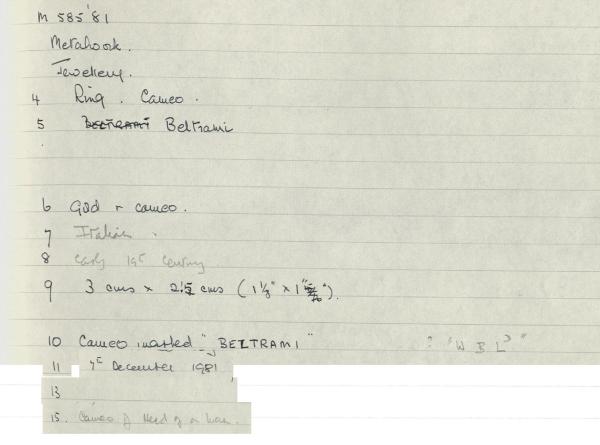 M 585'81
Metalwork.
Jewellery.
4 Ring. Cameo.
5 BELTRAMI Beltrami
6 Gold + cameo.
7 Italian.
8 Early 19c Century
9 3 cms x 2.5 cms (1 1/8" x 1
10 Cameo marked "BELTRAMI" ? "W B L"
11 7th December 1981
13
15. Cameo of Head of a man.